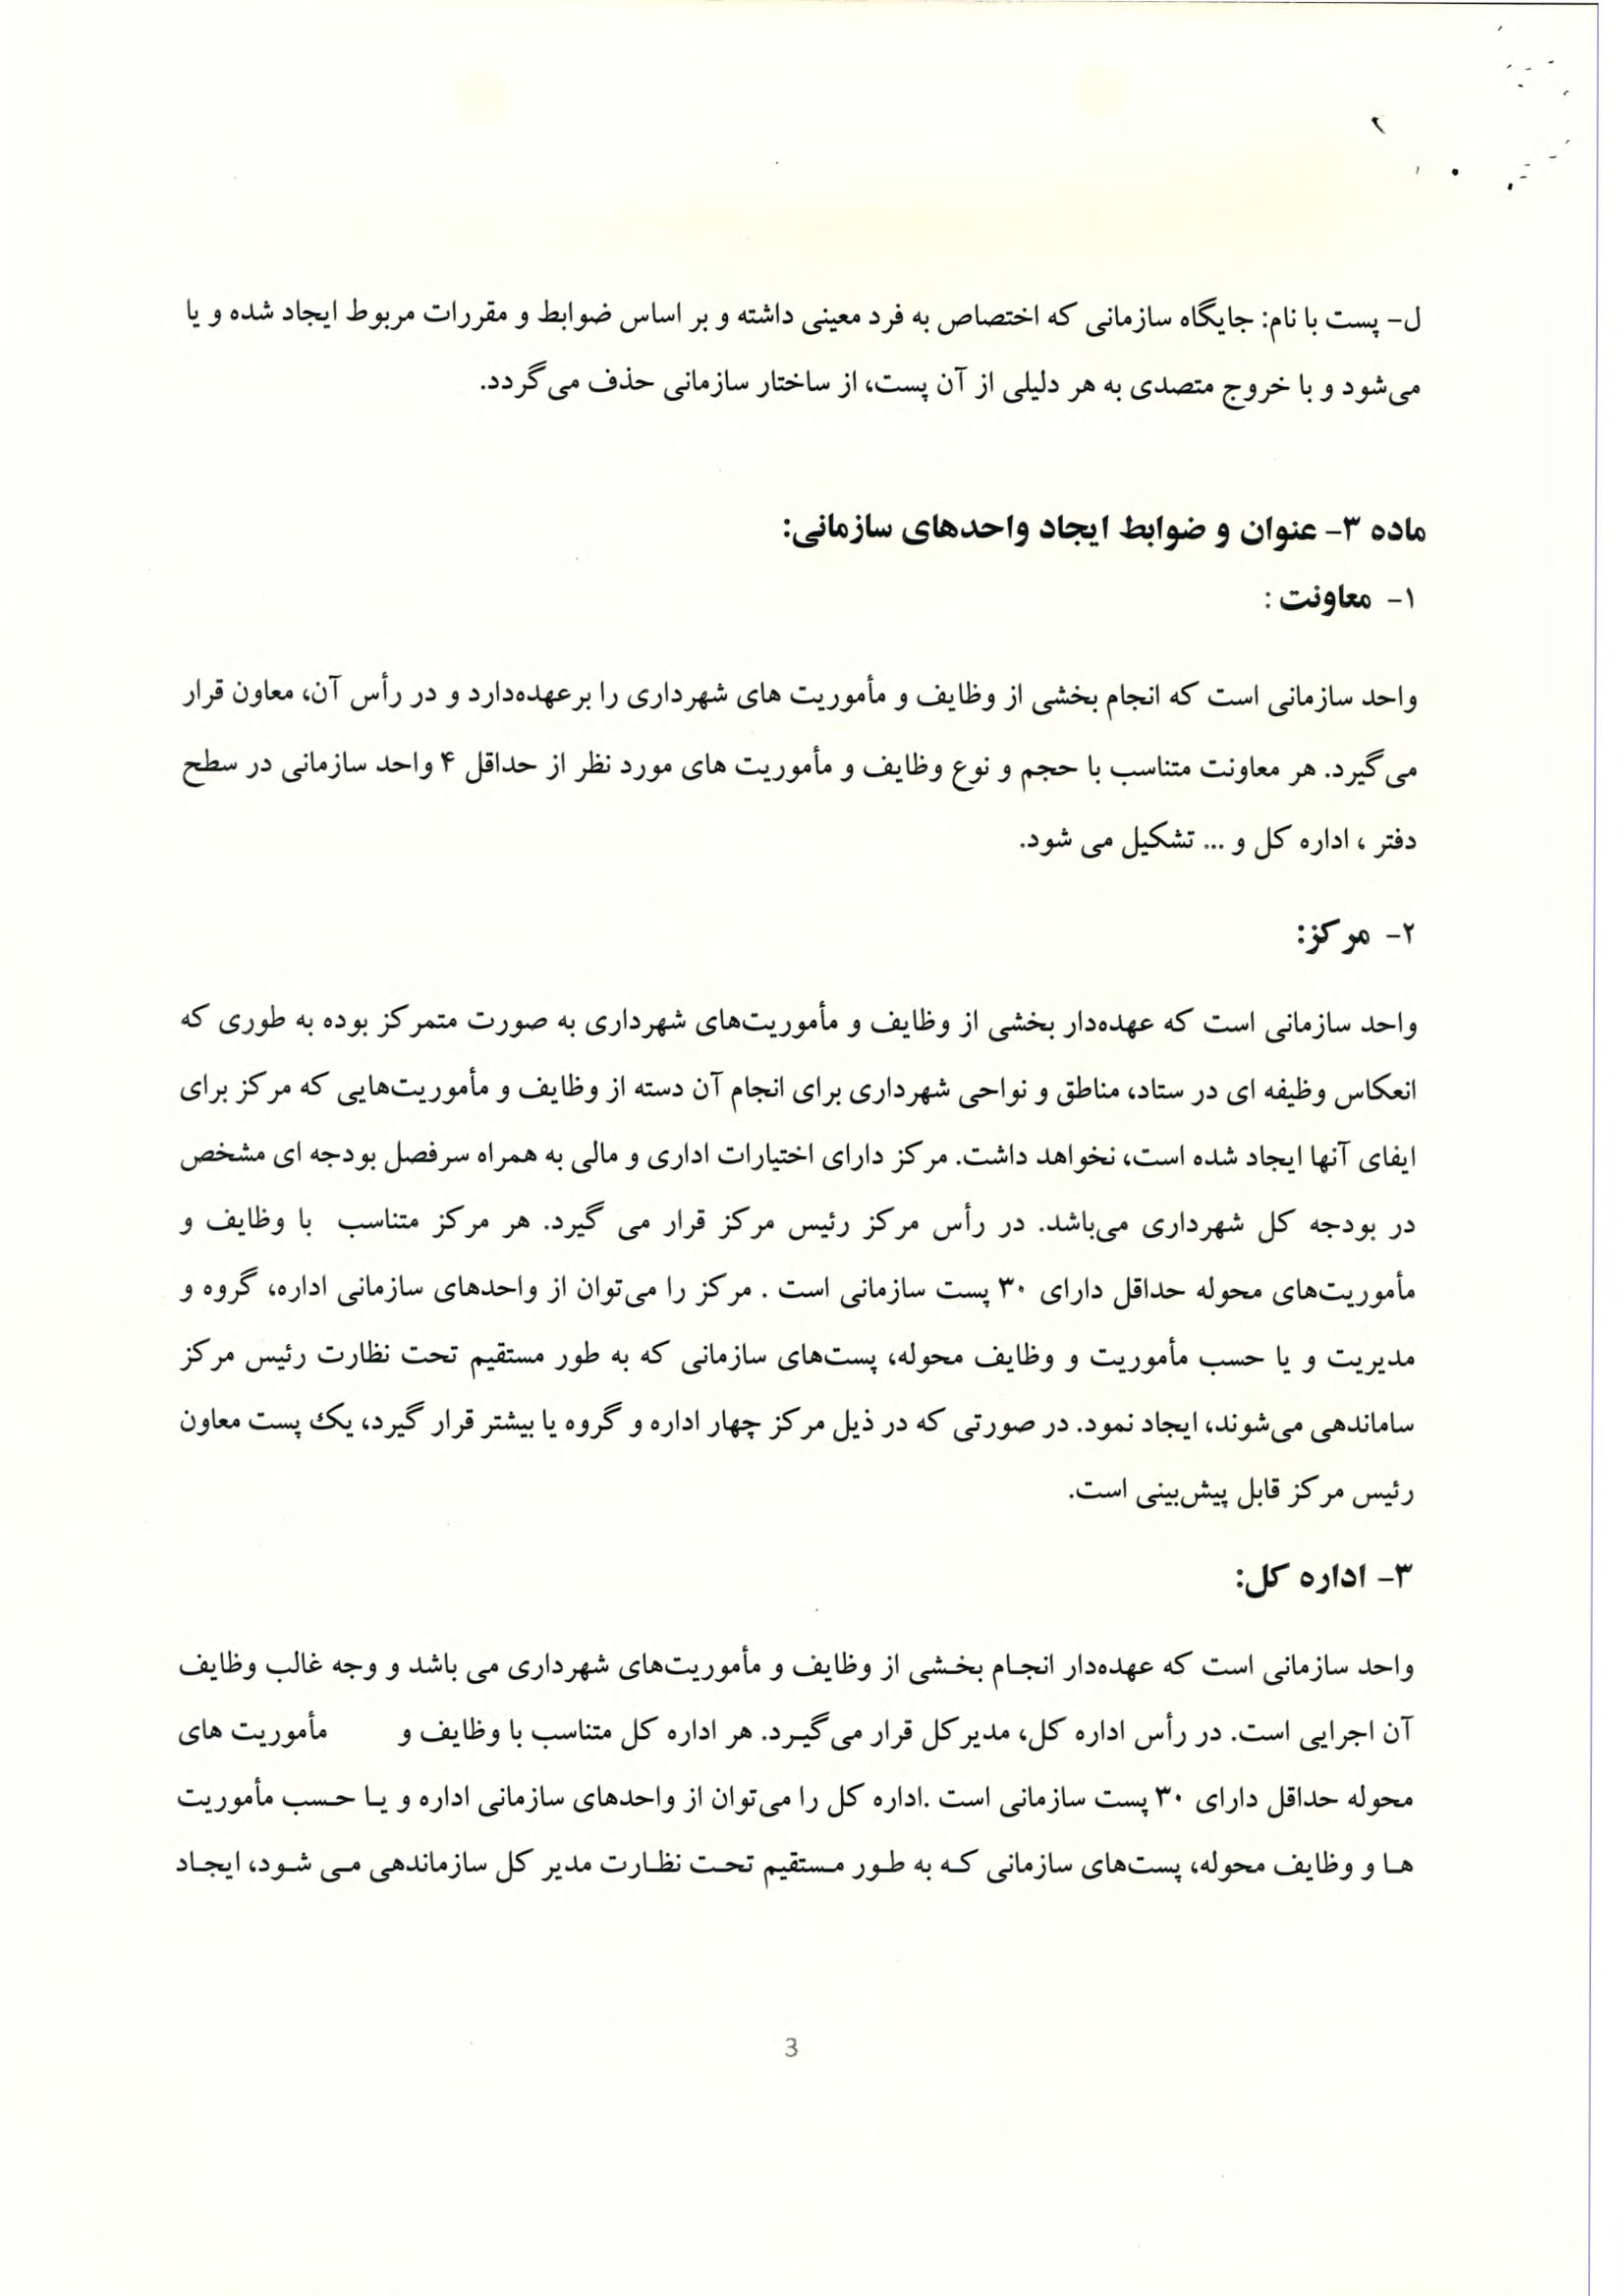 ل- پست با نام: جایگاه سازمانی که اختصاص به فرد معینی داشته و بر اساس ضوابط و مقررات مربوط ایجاد شده و یا
می‌شود و با خروج متصدی به هر دلیلی از آن پست، از ساختار سازمانی حذف می‌گردد.
ماده ۳- عنوان و ضوابط ایجاد واحدهای سازمانی:
۱- معاونت :
واحد سازمانی است که انجام بخشی از وظایف و مأموریت های شهرداری را برعهده‌دارد و در رأس آن، معاون قرار
می‌گیرد. هر معاونت متناسب با حجم و نوع وظایف و مأموریت های مورد نظر از حداقل ۴ واحد سازمانی در سطح
دفتر ، اداره کل و ... تشکیل می شود.
۲- مرکز:
واحد سازمانی است که عهده‌دار بخشی از وظایف و مأموریت‌های شهرداری به صورت متمرکز بوده به طوری که
انعکاس وظیفه ای در ستاد، مناطق و نواحی شهرداری برای انجام آن دسته از وظایف و مأموریت‌هایی که مرکز برای
ایفای آنها ایجاد شده است، نخواهد داشت. مرکز دارای اختیارات اداری و مالی به همراه سرفصل بودجه ای مشخص
در بودجه کل شهرداری می‌باشد. در رأس مرکز رئیس مرکز قرار می گیرد. هر مرکز متناسب با وظایف و
مأموریت‌های محوله حداقل دارای ۳۰ پست سازمانی است . مرکز را می‌توان از واحدهای سازمانی اداره، گروه و
مدیریت و یا حسب مأموریت و وظایف محوله، پست‌های سازمانی که به طور مستقیم تحت نظارت رئیس مرکز
ساماندهی می‌شوند، ایجاد نمود. در صورتی که در ذیل مرکز چهار اداره و گروه یا بیشتر قرار گیرد، یک پست معاون
رئیس مرکز قابل پیش‌بینی است.
۳- اداره کل:
واحد سازمانی است که عهده‌دار انجام بخشی از وظایف و مأموریت‌های شهرداری می باشد و وجه غالب وظایف
آن اجرایی است. در رأس اداره کل، مدیرکل قرار می‌گیرد. هر اداره کل متناسب با وظایف و مأموریت های
محوله حداقل دارای ۳۰ پست سازمانی است .اداره کل را می‌توان از واحدهای سازمانی اداره و یا حسب مأموریت
ها و وظایف محوله، پست‌های سازمانی که به طور مستقیم تحت نظارت مدیر کل سازماندهی می شود، ایجاد
3